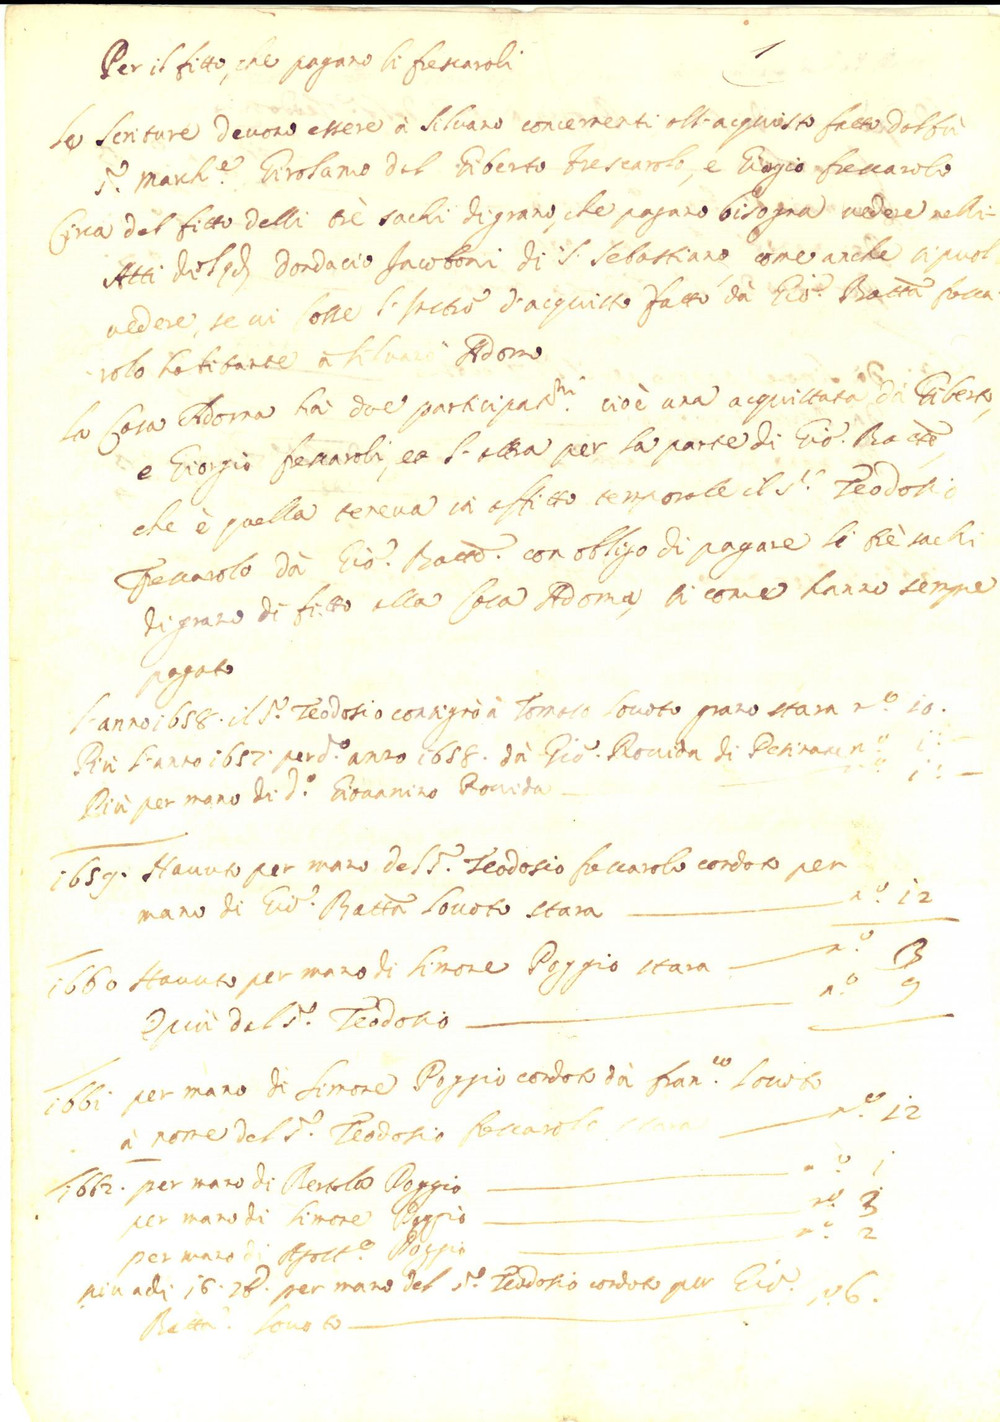 1
Per il fitto, che pagano li frescaroli
Le scriture devono essere à Silvano concernenti all'acquisto fatto dal fù
S.r March.e Girolamo dal Giberto frescarolo, e Giorgio frescarolo
Circa del fitto delli trè sachi di grano, che pagano bisogna vedere nelli
Atti del Dondacio Jacoboni di S. Sebastiano come anche si puol
vedere, se vi fosse l' d'acquisto fatto dà Gio. Batta fresca-
rolo habitante à Silvano Adorno
La Casa Adorna hà due cioè una acquistata dà Giberto,
e Giorgio frescaroli, et l'altra per la parte di Gio. Batta,
che è quella teneva in affitto temporale il S.r Teodosio
Frescarolo dà Gio. Batta. con obligo di pagare li trè sachi
di grano di fitto alla Casa Adorna, si come hanno sempre
pagato
L'anno 1658. il S.r Teodosio consignò à Tomaso Lovoto grano stara n.o 10.
Più l'anno 1657. per d.o anno 1658. dà Gio. Rovida di n.o 1: —
Più per mano di d.o Giovannino Rovida — n.o 1: —
1659. Havuto per mano del S.r Teodosio frescarolo condoto per
mano di Gio. Batta Lovoto stara — n.o 12
1660 Havuto per mano di Simone Poggio stara — n.o 3
E più dal S.r Teodosio — n.o 9
1661 per mano di Simone Poggio condoto dà Fran.co Lovoto
à nome del S.r Teodosio frescarolo stara — n.o 12
1662. per mano di Bertolo Poggio — n.o 1
per mano di Simone Poggio — n.o 3
per mano di Poggio — n.o 2
più adi 16. per mano del S.r Teodosio condoto per Gio.
Batta. Lovoto — n.o 6.